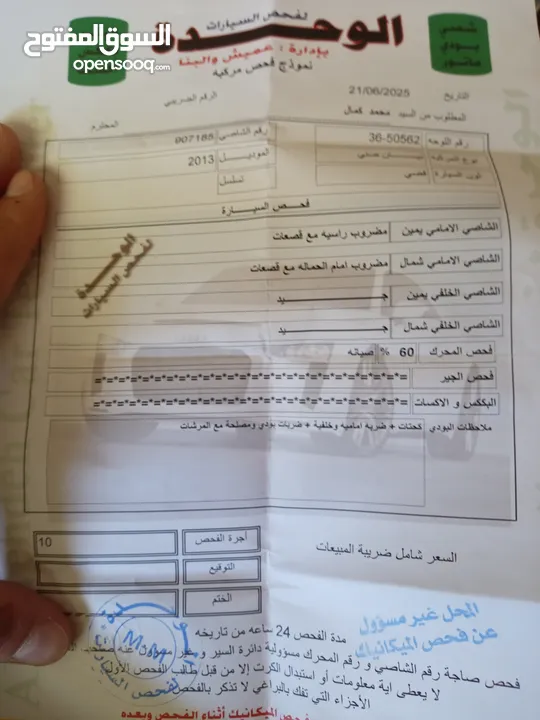 السوق المفتوح
opensooq.com
لفحص السيارات
الوحدة
بإدارة : عميش والبنا
نموذج فحص مركبه
شصي
بودي
ماتور
التاريخ 21/06/2025 الرقم الضريبي
المطلوب من السيد محمد كمال المحترم
رقم اللوحه 36-50562 رقم الشاصي 907165
نوع المركبه الموديل 2013
لون السيارة فضي تسلسل
فحص السيارة
الشاصي الامامي يمين مضروب راسيه مع قصعات
الشاصي الامامي شمال مضروب امام الحماله مع قصعات
الشاصي الخلفي يمين جيد
الشاصي الخلفي شمال جيد
فحص المحرك 60 % صيانه
فحص الجير =*=*=*=*=*=*=*=*=*=*=*=*=*=*=*=*=*=
البككس و الاكسات =*=*=*=*=*=*=*=*=*=*=*=*=*=*=*=*=*=
ملاحظات البودي كحتات + ضربه اماميه وخلفية + ضربات بودي ومصلحة مع المرشات
الوحدة
لفحص السيارات
السعر شامل ضريبة المبيعات
أجرة الفحص 10
التوقيع
الختم
المحل غير مسؤول
عن فحص الميكانيك
مدة الفحص 24 ساعه من تاريخه
فحص صاجة رقم الشاصي و رقم المحرك مسؤولية دائرة السير و غير مسؤول عنه صاحب
لا يعطى اية معلومات أو استبدال الكرت إلا من قبل طالب الفحص الأول
الأجزاء التي تفك بالبراغي لا تذكر بالفحص
فحص الميكانيك أثناء الفحص وبعده